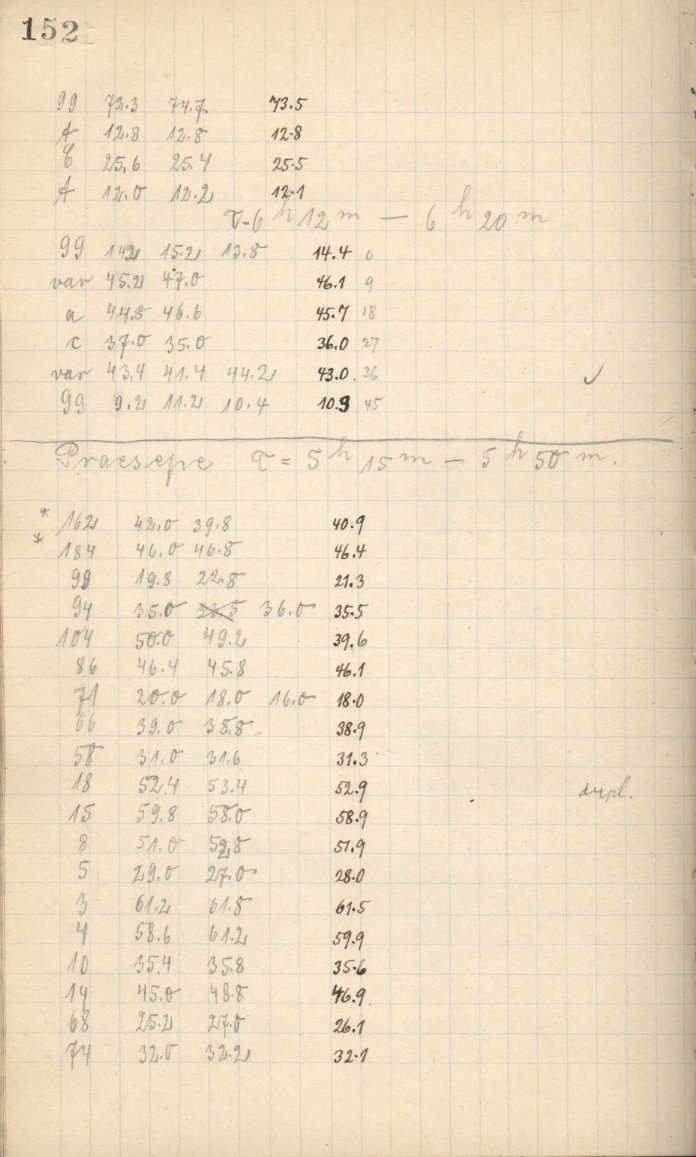 152
99 72.3 74.7 73.5
A 12.8 12.8 12.8
b 25.6 25.4 25.5
A 12.0 12.2 12.1
τ-6 h 12 m — 6 h 20 m
99 142 15.2 13.8 14.4 0
var 45.2 47.0 46.1 9
a 44.8 46.6 45.7 18
c 37.0 35.0 36.0 27
var 43.4 41.4 44.2 43.0 36 ✓
99 9.2 11.2 10.4 10.3 45
Praesepe τ = 5 h 15 m — 5 h 50 m.
* 162 42.0 39.8 40.9
* 184 46.0 46.8 46.4
99 19.8 22.8 21.3
94 35.0 36.0 35.5
104 50.0 49.2 39.6
86 46.4 45.8 46.1
71 20.0 18.0 16.0 18.0
66 39.0 38.8 38.9
58 31.0 31.6 31.3
18 52.4 53.4 52.9 dupl.
15 59.8 58.0 58.9
8 51.0 52.8 51.9
5 29.0 27.0 28.0
3 61.2 61.8 61.5
4 58.6 61.2 59.9
10 35.4 35.8 35.6
14 45.0 48.8 46.9
68 25.2 27.0 26.1
74 32.0 32.2 32.1